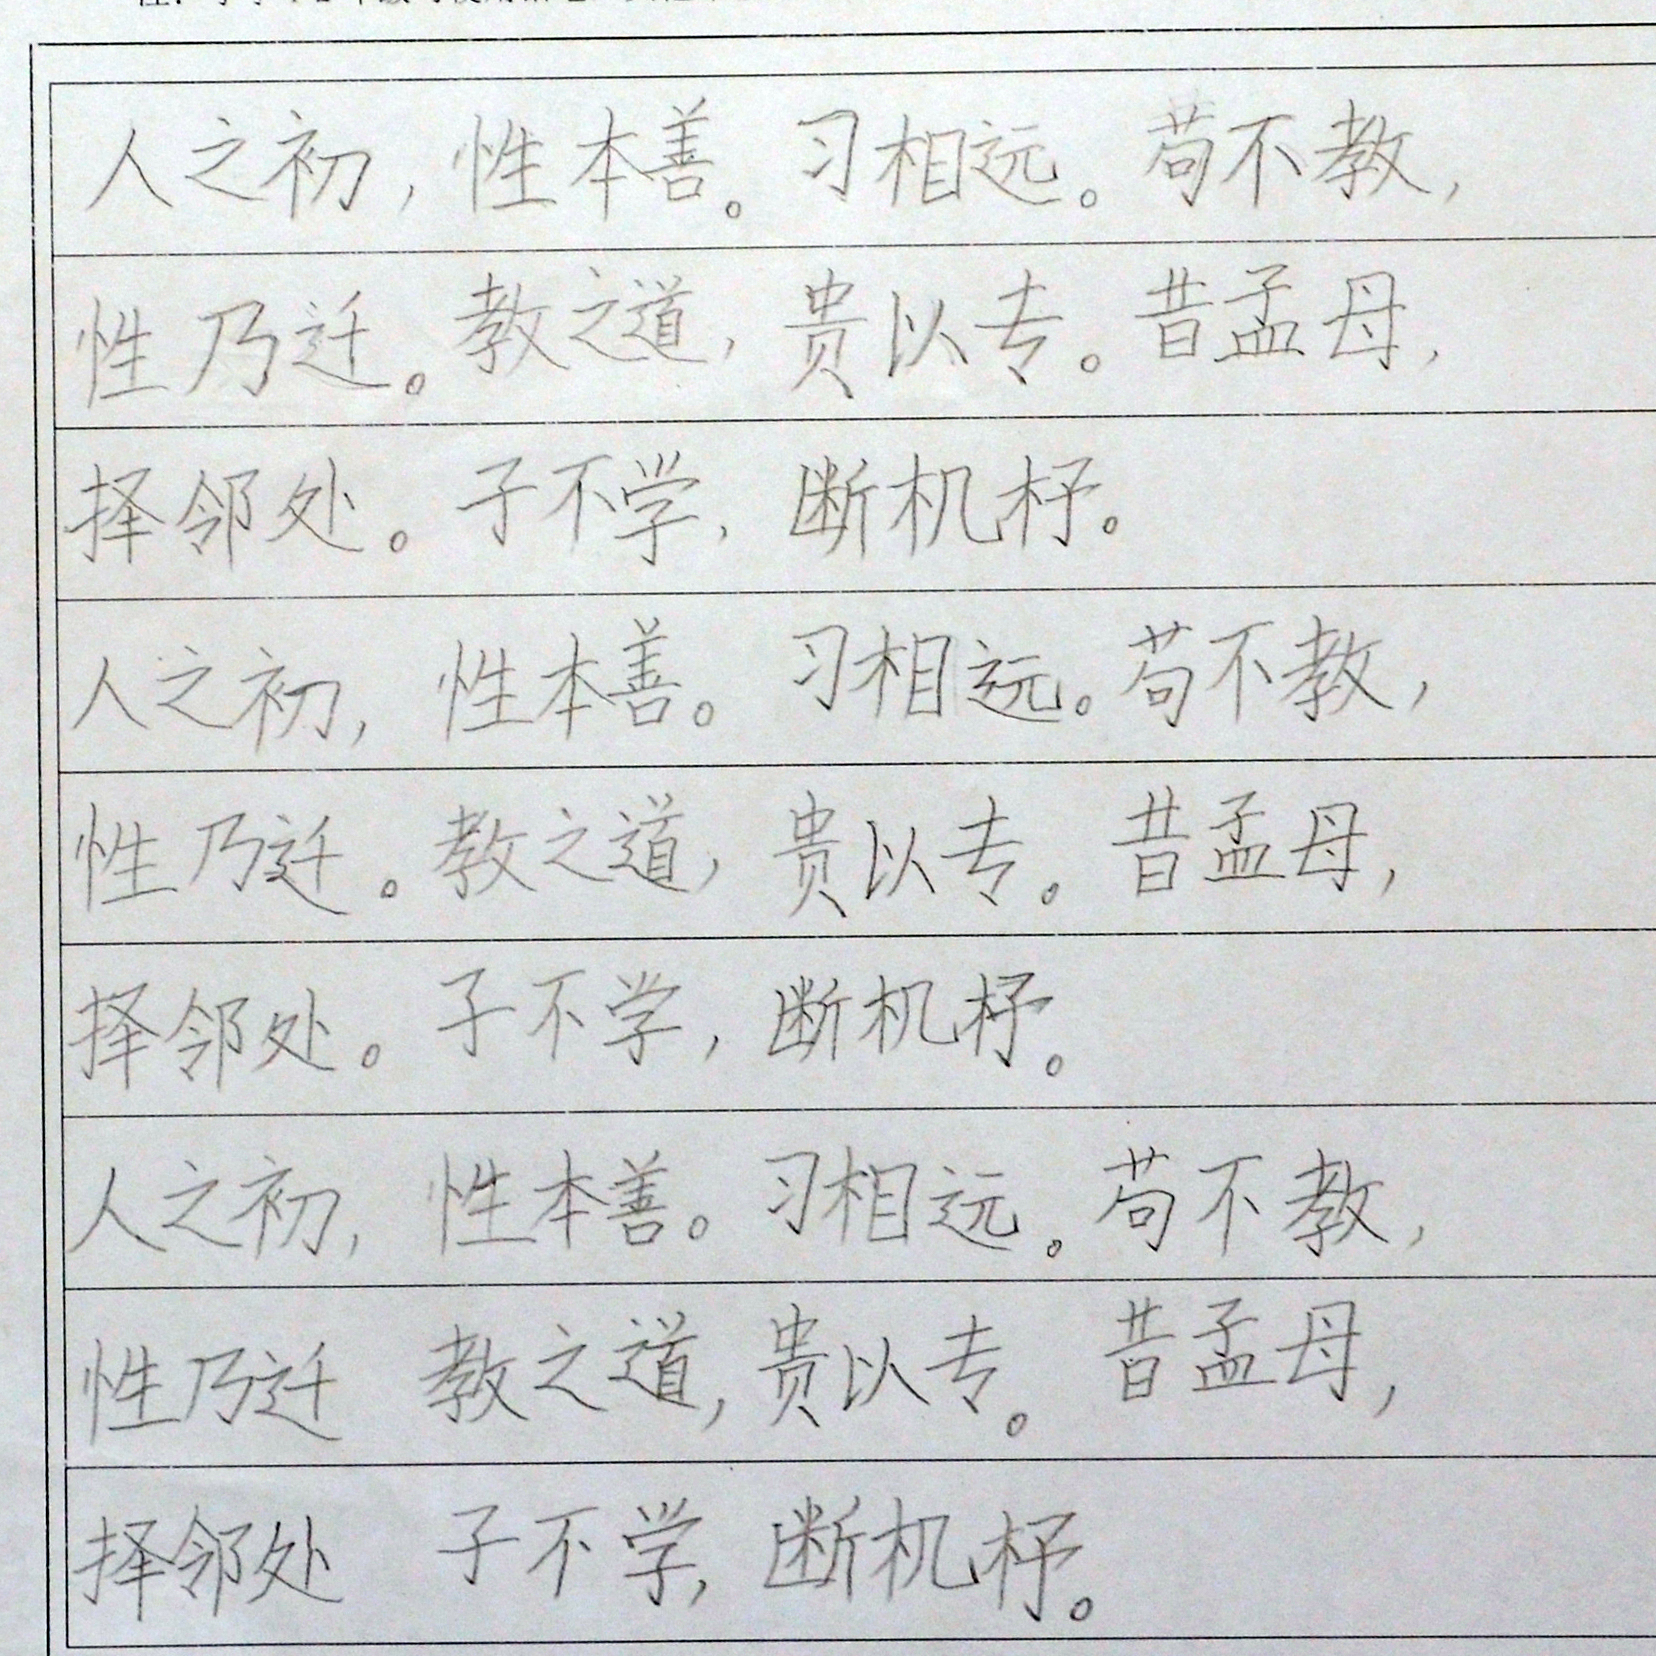 人之初，性本善。习相远。苟不教，
性乃迁。教之道，贵以专。昔孟母，
择邻处。子不学，断机杼。
人之初，性本善。习相远。苟不教，
性乃迁。教之道，贵以专。昔孟母，
择邻处。子不学，断机杼。
人之初，性本善。习相远。苟不教，
性乃迁 教之道，贵以专。昔孟母，
择邻处 子不学，断机杼。